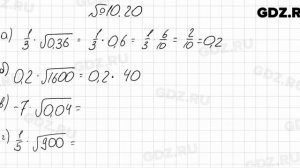 №10.20
GDZ.RU
а) 1/3 · √0,36 = 1/3 · 0,6 = 1/3 · 6/10 = 2/10 = 0,2
б) 0,2 · √1600 = 0,2 · 40
в) -7 · √0,04 =
г) 1/3 · √900 =
GDZ.RU